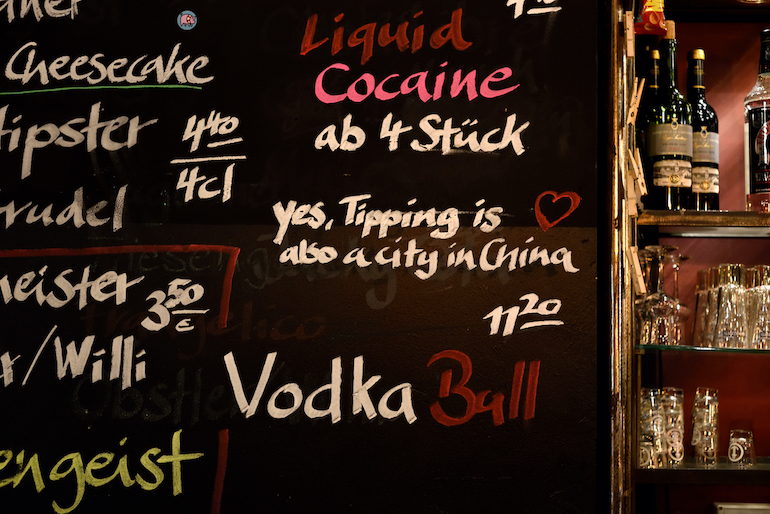 Cheesecake
tipster
4,40
4cl
rudel
meister
3,50
€
/Willi
engeist
Liquid
Cocaine
ab 4 Stück
yes, Tipping is
also a city in China
11,20
Vodka Bull